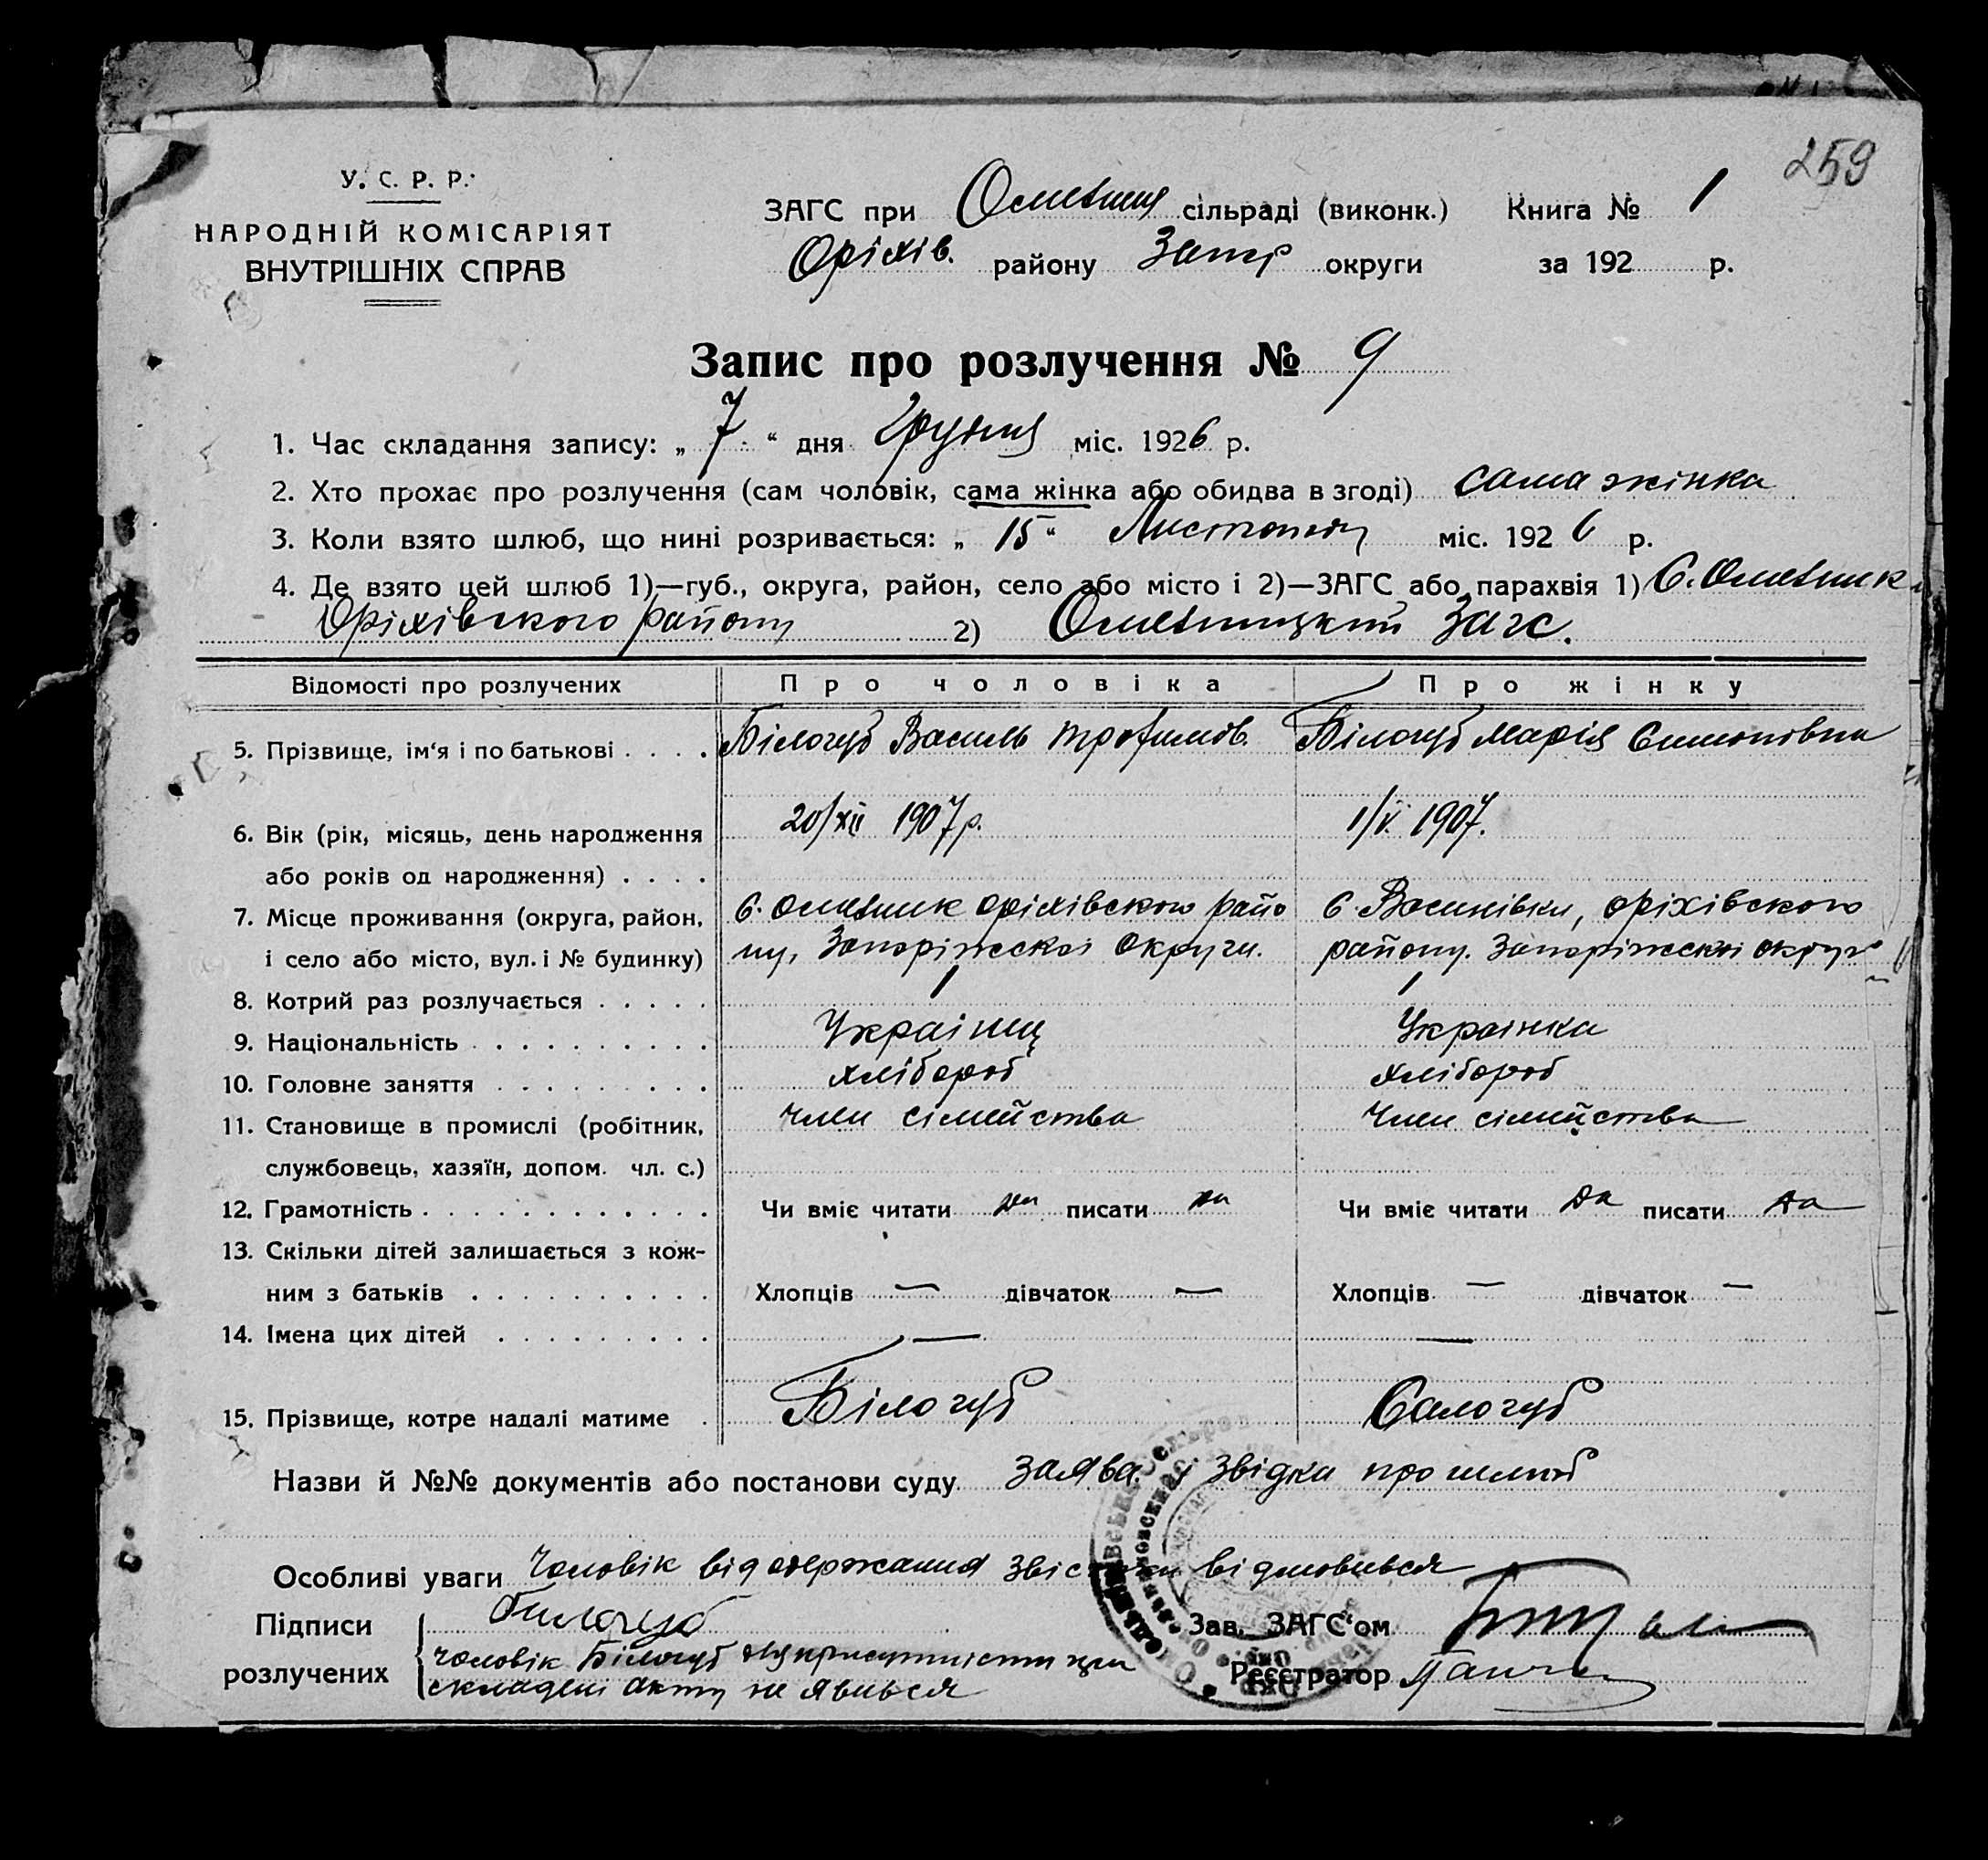 259
У. С. Р. Р.
НАРОДНІЙ КОМІСАРІЯТ
ВНУТРІШНІХ СПРАВ
ЗАГС при Ометник сільраді (виконк.) Книга № 1
Оріхів. району Запор округи за 192 р.
Запис про розлучення № 9
1. Час складання запису: „ 7 “ дня Грудня міс. 1926 р.
2. Хто прохає про розлучення (сам чоловік, сама жінка або обидва в згоді) сама жінка
3. Коли взято шлюб, що нині розривається: „ 15 “ Листопаду міс. 1926 р.
4. Де взято цей шлюб 1)—губ., округа, район, село або місто і 2)—ЗАГС або парахвія 1) С. Ометник
Оріхівского району 2) Ометницкий Загс.
Відомості про розлучених Про чоловіка Про жінку
5. Прізвище, ім‘я і по батькові . . . . Білогуб Василь Трофимов. Білогуб Марія Симонівна
6. Вік (рік, місяць, день народження 20/XII 1907 р. 1/V. 1907.
або років од народження) . . . .
7. Місце проживання (округа, район, С. Ометник Оріхівского райо С. Васинівки, Оріхівского
і село або місто, вул. і № будинку) ну, Запоріжскоі Округи. району. Запоріжскоі округи
8. Котрий раз розлучається . . . . . 1 1
9. Національність . . . . . . . . . . Українц Українка
10. Головне заняття . . . . . . . . . хлібороб хлібороб
11. Становище в промислі (робітник, член сімейства член сімейства
службовець, хазяїн, допом. чл. с.)
12. Грамотність . . . . . . . . . . . . Чи вміє читати да писати да Чи вміє читати да писати да
13. Скільки дітей залишається з кож-
ним з батьків . . . . . . . . . . Хлопців — дівчаток — Хлопців — дівчаток —
14. Імена цих дітей . . . . . . . . . — —
15. Прізвище, котре надалі матиме . Білогуб Салогуб
Назви й №№ документів або постанови суду заява і звідка про шлюб
Особливі уваги Чоловік від одержання звістки відмовився
Підписи Билогуб Зав. ЗАГС‘ом
розлучених чоловік Білогуб присутністи при Реєстратор
складені акту не явився